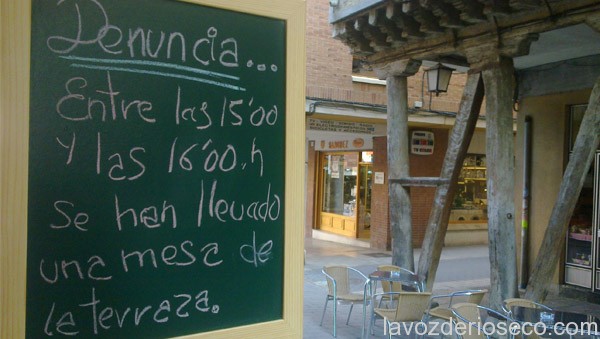 Denuncia...
Entre las 15'00
y las 16'00.h
se han llevado
una mesa de
la terraza.
lavozderioseco.com